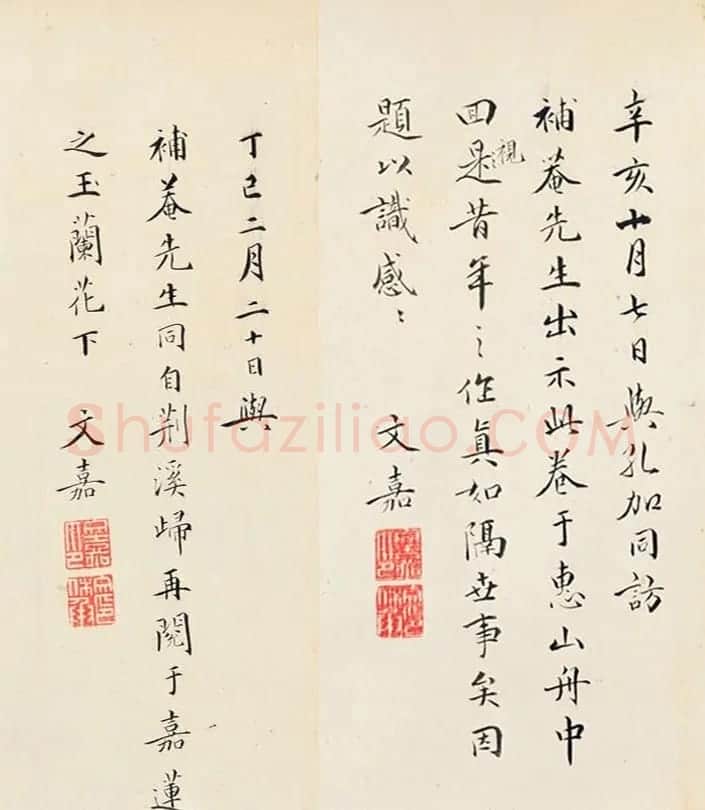 辛亥十月七日與孔加同訪
補菴先生出示此卷于惠山舟中
回視是昔年之作真如隔世事矣因
題以識感感
文嘉
丁巳二月二十日與
補菴先生同自荆溪歸再閱于嘉蓮
之玉蘭花下
文嘉
Shufaziliao.COM